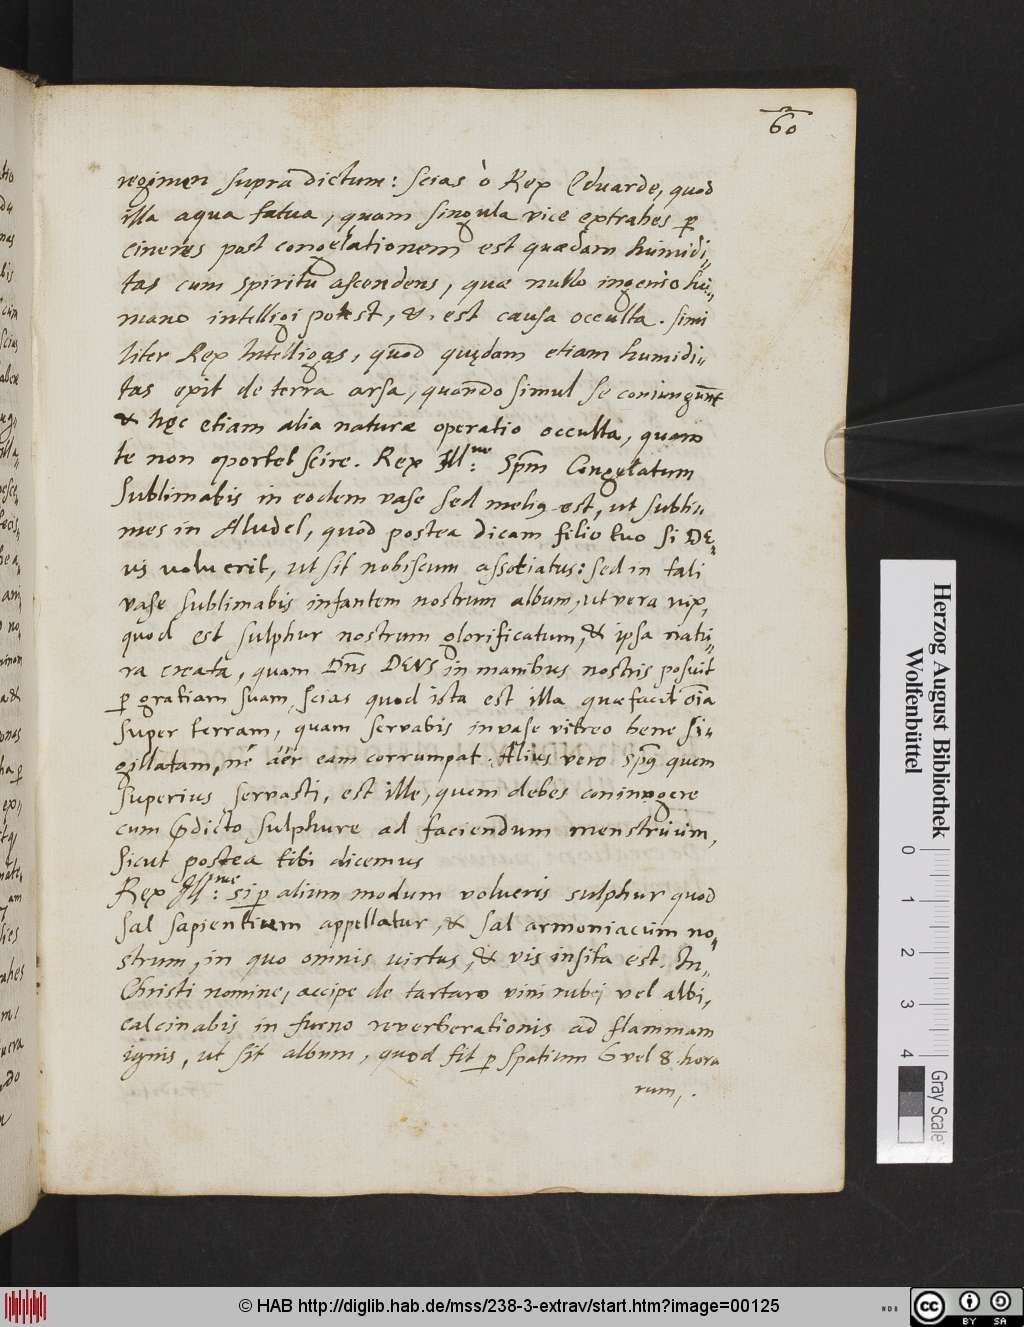 60
regimen supra dictum: scias ò Rex Eduarde, quod
illa aqua fatua, quam singula vice extrahes p
cineres post congelationem est quaedam humidi„
tas cum spiritu ascendens, quae nullo ingenio hu„
mano intelligi potest, &. est causa occulta. simi
liter Rex Intelligas, quod quędam etiam humidi„
tas exit de terra arsa, quando simul se coniungunt
& hęc etiam alia naturae operatio occulta, quam
te non oportet scire. Rex Ill:me Spm Congelatum
Sublimabis in eodem vase sed meliq est, ut subli„
mes in Aludel, quod postea dicam filio tuo si DE„
us voluerit, ut sit nobiscum associatus: sed in tali
vase sublimabis infantem nostrum album, ut vera nix,
quod est sulphur nostrum glorificatum, & ipsa natu„
ra creata, quam Dns DEUS in manibus nostris posuit
p gratiam suam, scias quod ista est illa quae facit oia
super terram, quam servabis in vase vitreo bene si„
gillatam, né aër eam corrumpat. Alius vero spq quem
superius servasti, est ille, quem debes coniungere
cum pdicto sulphure ad faciendum menstruum,
sicut postea tibi dicemus
Rex Ill:me si p alium modum volueris sulphur quod
sal sapientium appellatur, & sal armoniacum no„
strum, in quo omnis virtus, & vis insita est. In„
Christi nomine, accipe de tartaro vini rubei vel albi,
calcinabis in furno reverberationis ad flammam
ignis, ut sit album, quod fit p spatium 6 vel 8. hora
rum,.
Herzog August Bibliothek
Wolfenbüttel
0 1 2 3 4
Gray Scale
© HAB http://diglib.hab.de/mss/238-3-extrav/start.htm?image=00125
cc BY SA